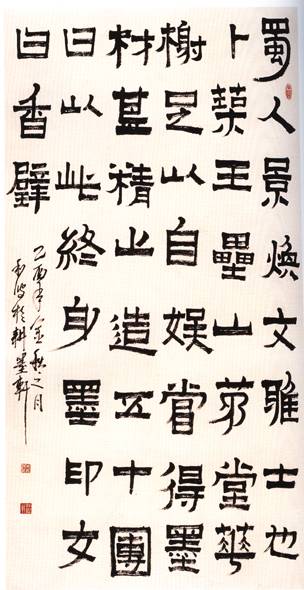 蜀人景煥文雅士也
卜築王壘山茅堂華
榭足以自娛嘗得墨
材甚精止造五十團
曰以此終身墨印文
曰香璧
乙酉年金秋之月
於耕墨軒